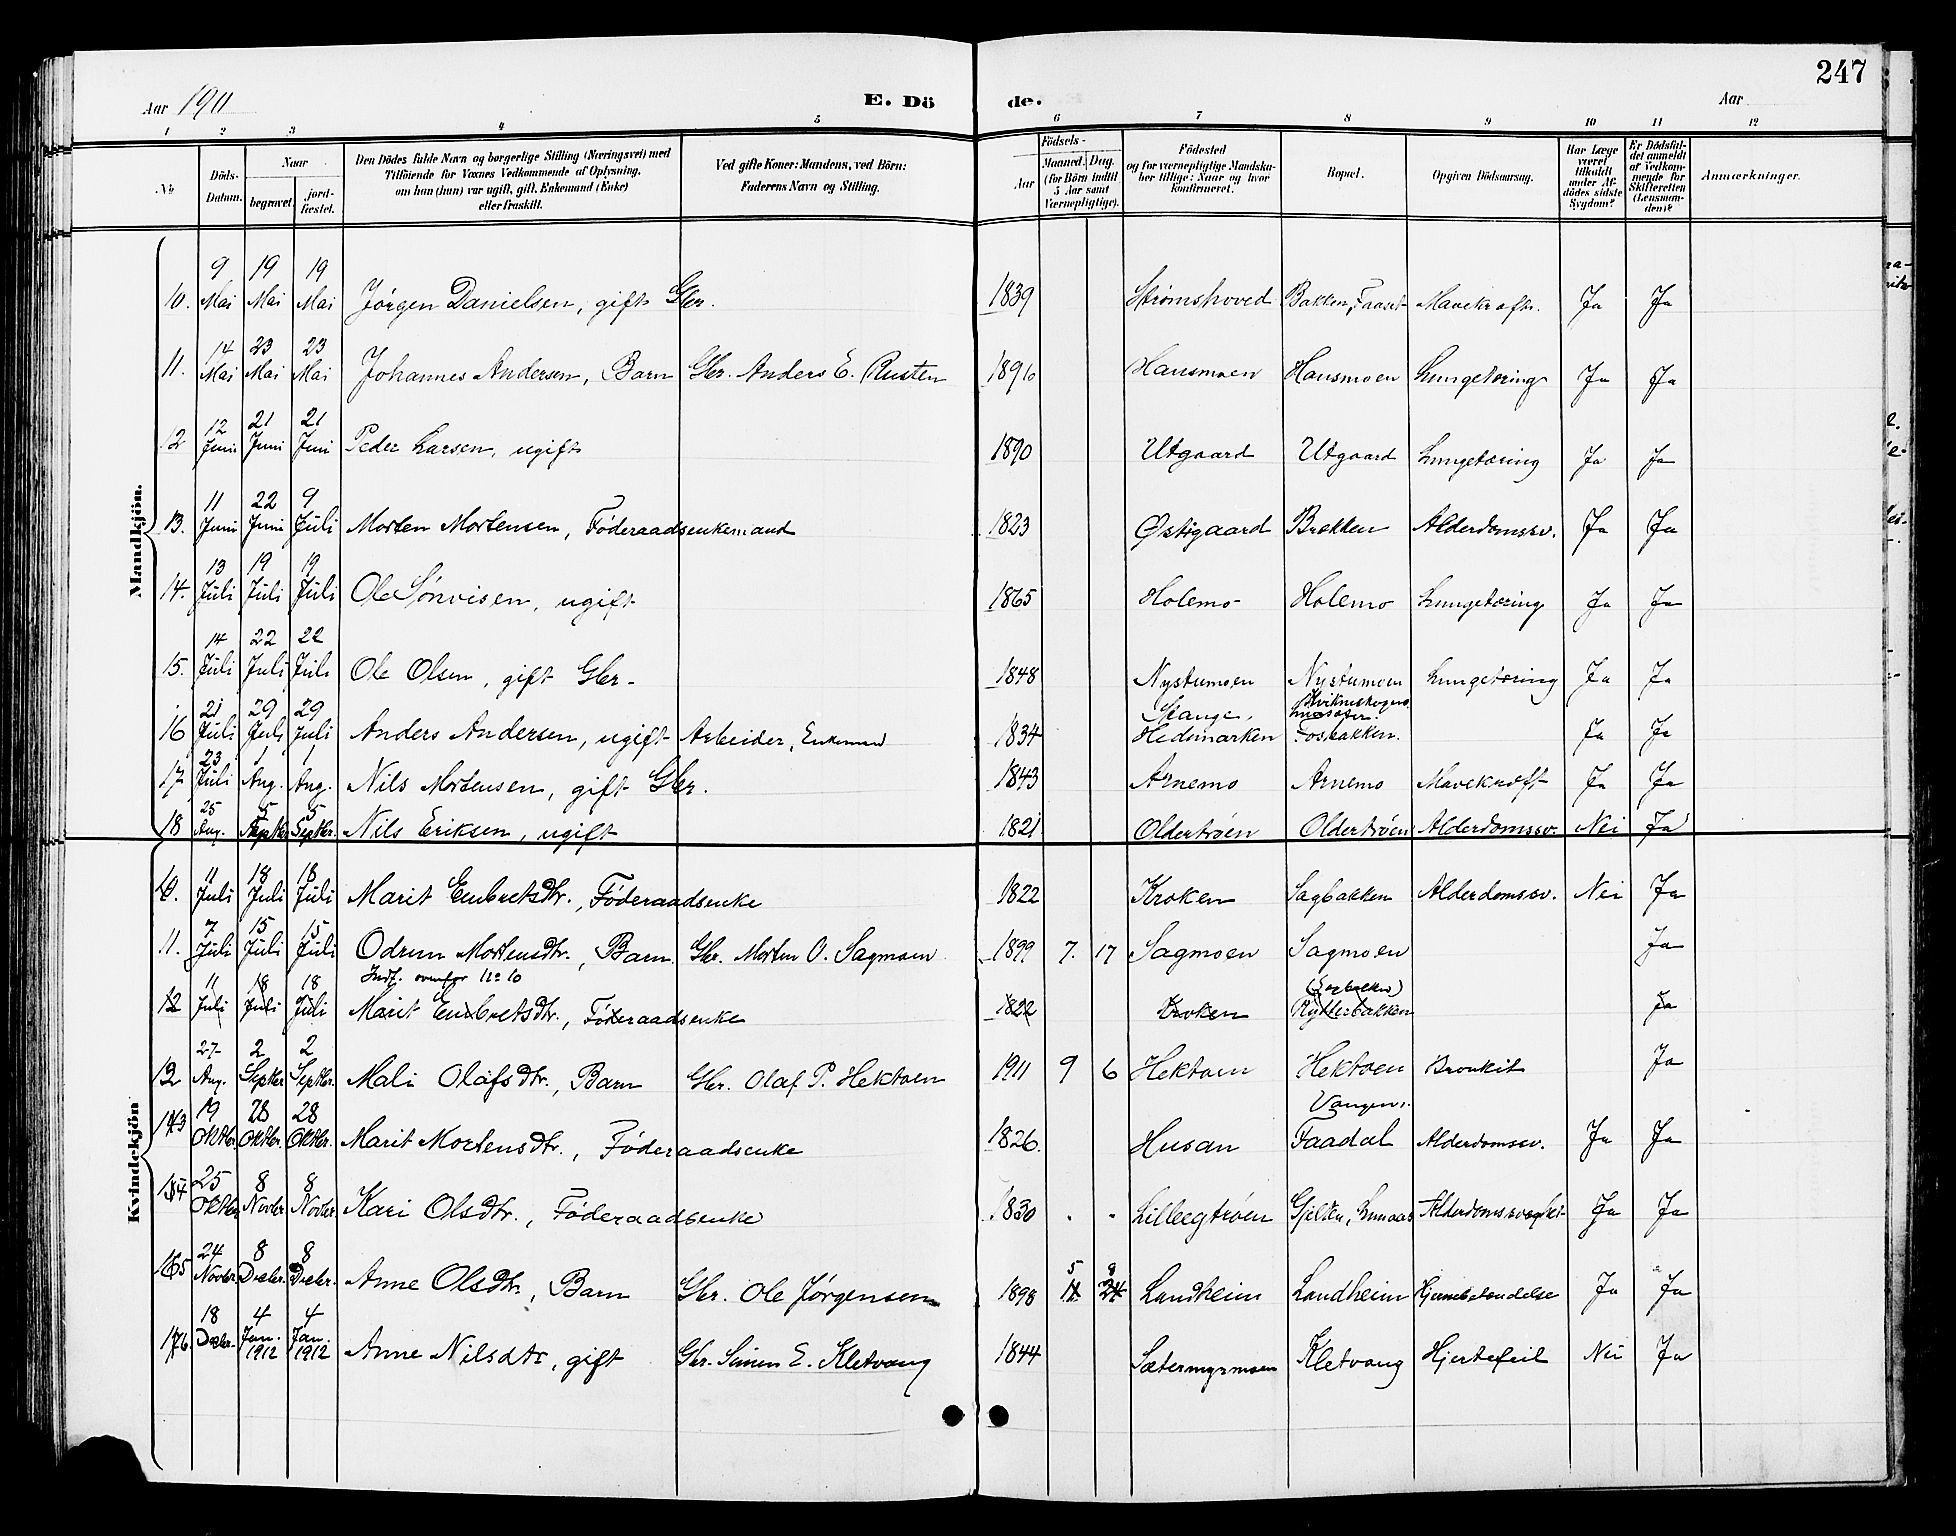 247
Aar 1911 E. Dö de. Aar
1 2 3 4 5 6 7 8 9 10 11 12
No Döds-Datum. Naar begravet. jord-fæstet. Den Dödes fulde Navn og borgerlige Stilling (Næringsvei) med Tilföiende for Voxnes Vedkommende af Oplysning, om han (hun) var ugift, gift, Enkemand (Enke) eller fraskilt. Ved gifte Koner: Mandens, ved Börn: Faderens Navn og Stilling. Födsels- Aar Maaned. Dag. (for Börn indtil 5 Aar samt Værnepligtige). Födested og for værnepligtige Mandskaber tillige: Naar og hvor konfirmeret. Bopæl. Opgiven Dödsaarsag. Har Læge været tilkaldt under Afdödes sidste Sygdom? Er Dödsfaldet anmeldt af Vedkommende for Skifteretten (Lensmanden)? Anmærkninger.
Mandkjön.
10. 9 Mai 19 Mai 19 Mai Jørgen Danielsen, gift Gbr. 1839 Strømshoved Bakken, Faaset Mavekræft. Ja Ja
11. 14 Mai 23 Mai 23 Mai Johannes Andersen, Barn Gbr. Anders E. Rusten 1896 Hausmoen Hausmoen Lungetæring Ja Ja
12 12 Juni 21 Juni 21 Juni Peder Larsen, ugift 1890 Utgaard Utgaard Lungetæring Ja Ja
13. 11 Juni 22 Juni 9 Juli Morten Mortensen, Føderaadsenkemand 1823 Østigaard Brekken Alderdomssv. Ja Ja
14. 13 Juli 19 Juli 19 Juli Ole Sønvisen, ugift 1865 Holemo Holemo Lungetæring Ja Ja
15. 14 Juli 22 Juli 22 Juli Ole Olsen, gift Gbr. 1848 Nystumoen Nystumoen Lungetæring Ja Ja
16 21 Juli 29 Juli 29 Juli Anders Andersen, ugift Arbeider, Enkemand 1834 Stange, Hedemarken Fosbakken. Ja Ja
17. 23 Juli 1 Aug. 1 Aug. Nils Mortensen, gift Gbr. 1843 Arnemo Arnemo Mavekræft Ja Ja
18 25 Aug. 5 Septbr. 5 Septbr. Nils Eriksen, ugift 1821 Oldertrøen Oldertrøen Alderdomssv. Nei Ja
Kvindekjön
10. 11 Juli 18 Juli 18 Juli Marit Embretsdtr., Føderaadsenke 1822 Kroken Sagbakken Alderdomssv. Nei Ja
11. 7 Juli 15 Juli 15 Juli Odrun Mortensdtr., Barn Gbr. Morten O. Sagmoen 1899 7. 17 Sagmoen Sagmoen Ja
Indf. ovenfor No 10
12 11 Juli 18 Juli 18 Juli Marit Embretsdtr., Føderaadsenke 1822 Kroken Rytterbakken Ja
12 27 Aug. 2 Septbr 2 Septbr. Mali Olafsdtr., Barn Gbr. Olaf P. Hektoen 1911 9 6 Hektoen Hektoen Bronkit Ja
13 19 Oktbr. 28 Oktbr. 28 Oktbr. Marit Mortensdtr., Føderaadsenke 1826. Husan Vangen, Faadal Alderdomssv. Ja Ja
14 25 Oktbr 8 Novbr 8 Novbr Kari Olsdtr., Føderaadsenke 1830 Lilleegtrøen Gjelten, Lunaas Ja Ja
15 24 Novbr 8 Decbr. 8 Decbr. Anne Olsdtr., Barn Gbr. Ole Jørgensen 1898 5 11. 8 24 Landheim Landheim Hjernebetændelse Ja Ja
16. 18 Decbr. 4 Jan. 1912 4 Jan. 1912 Anne Nilsdtr, gift Gbr. Simen E. Kletvang 1844 Sætermyrmoen Kletvang Hjertefeil Nei Ja